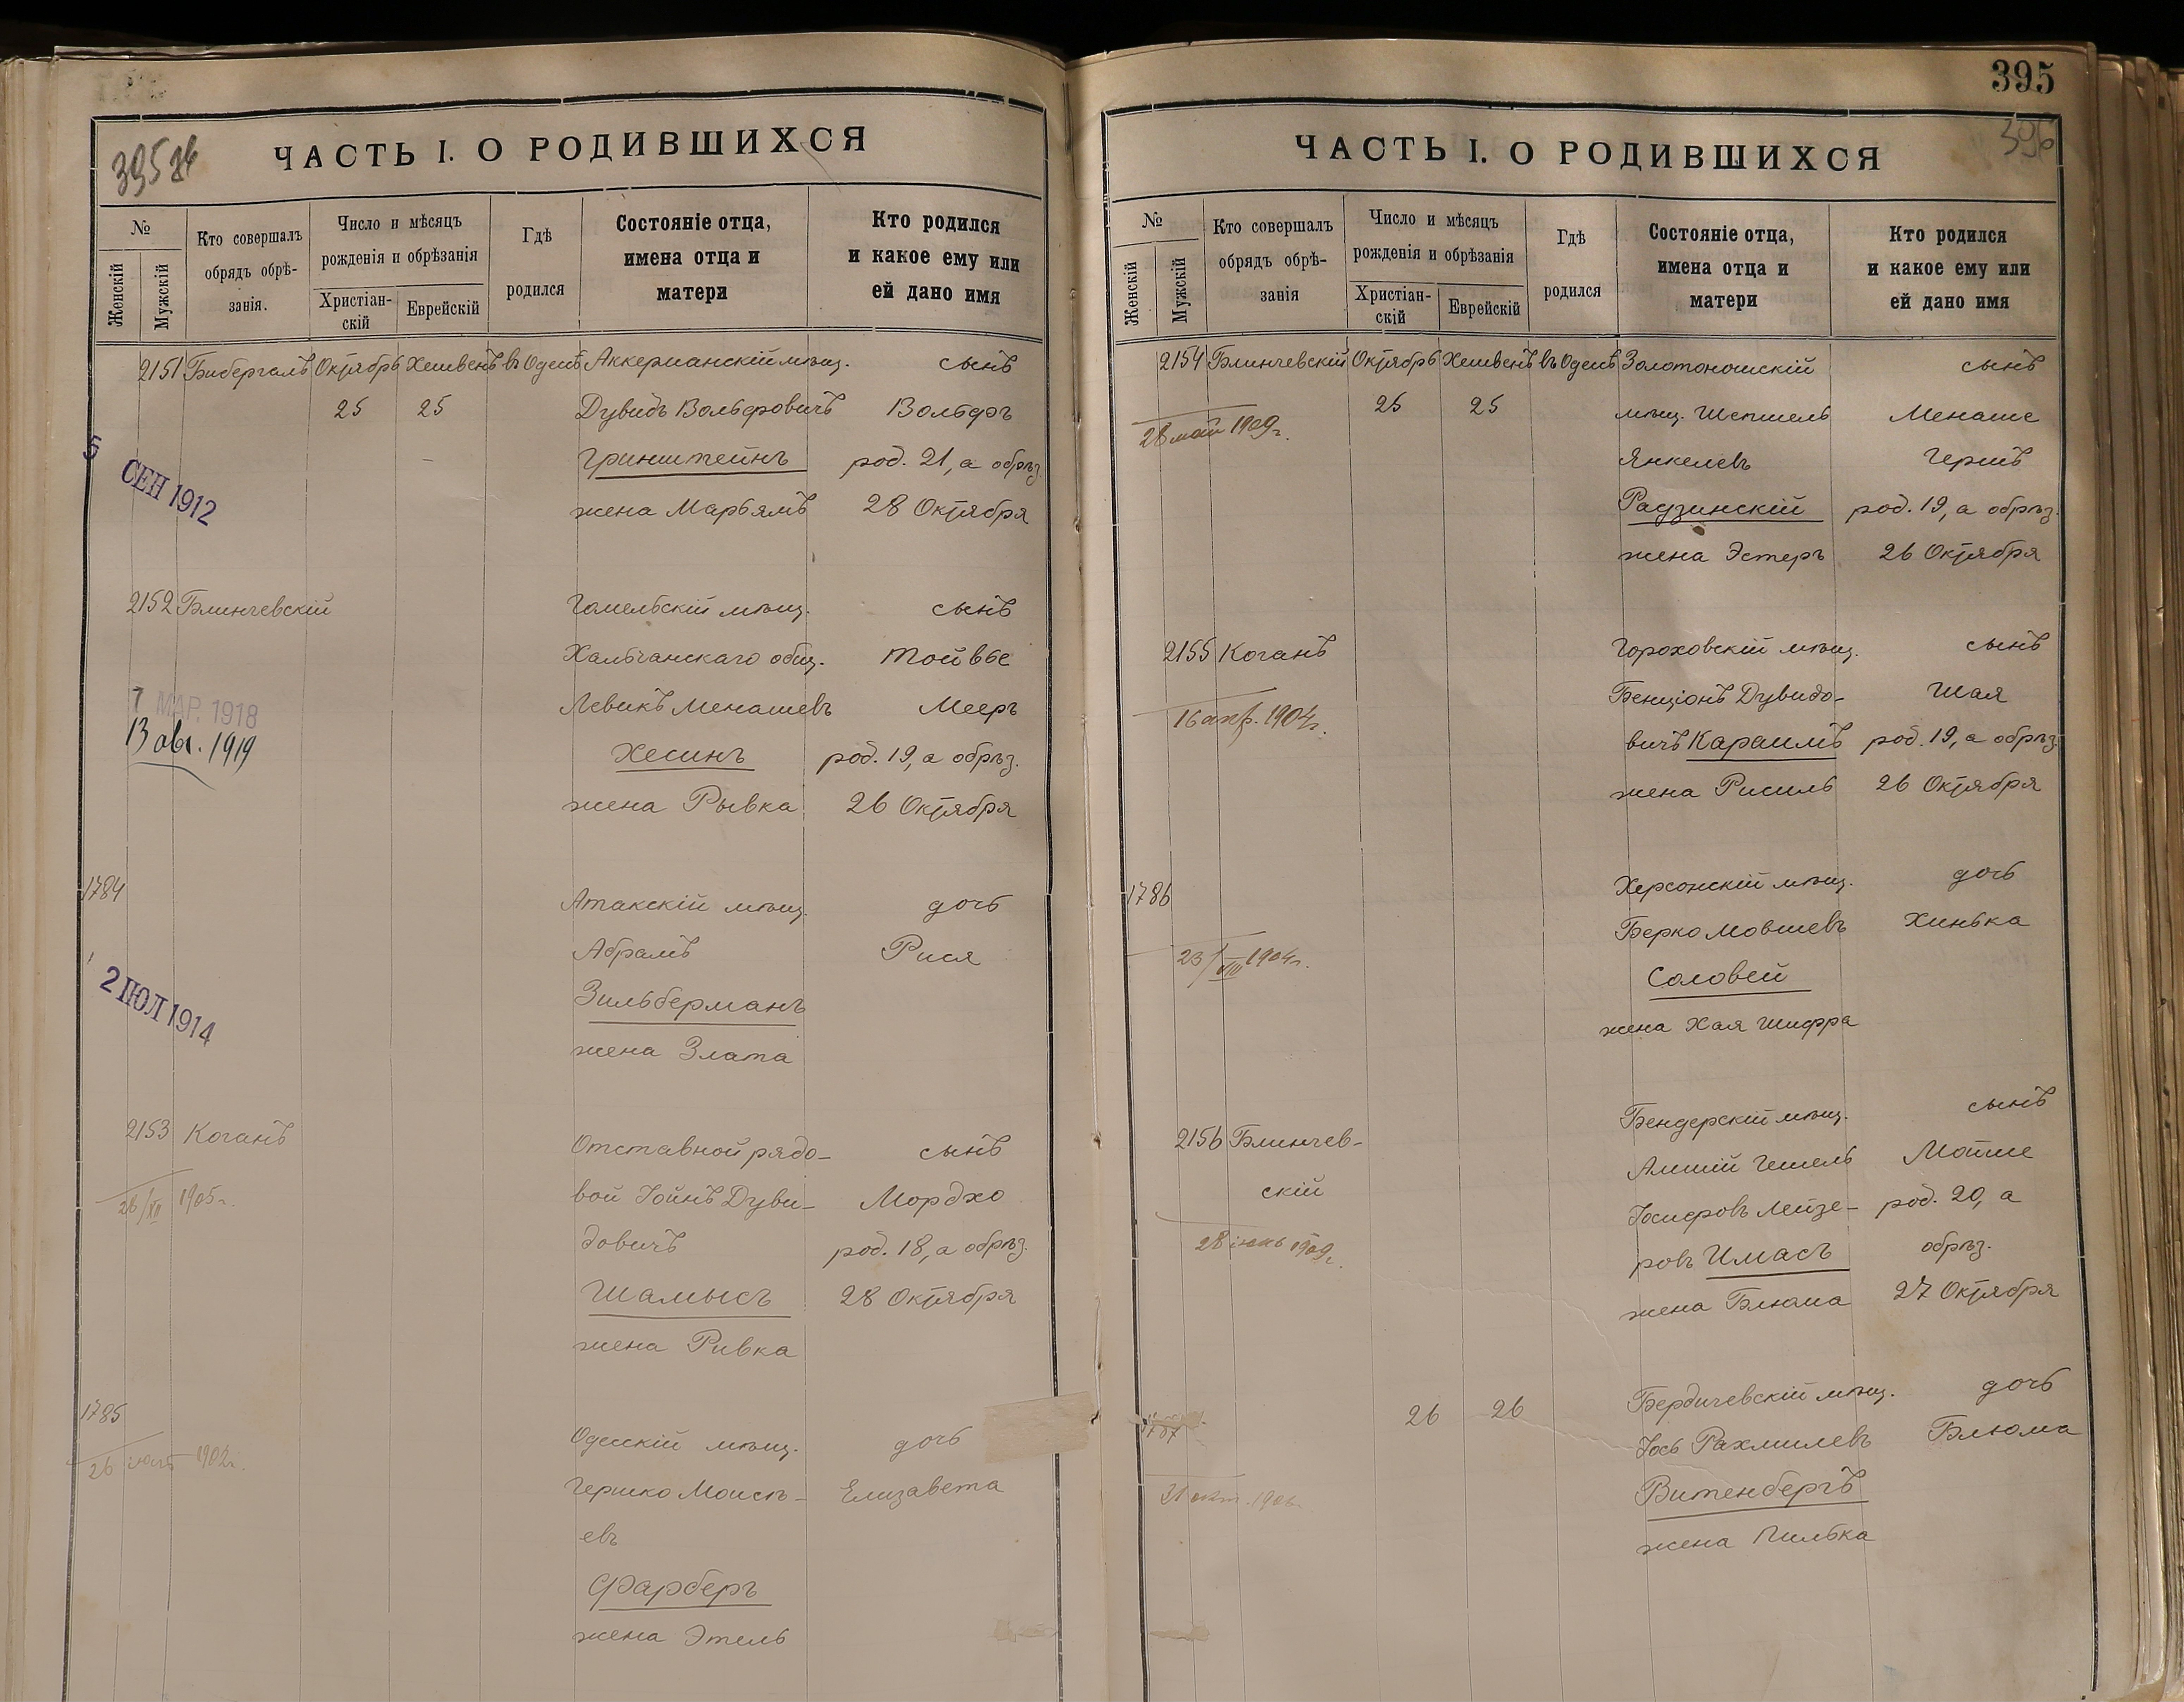 395 об
ЧАСТЬ I. О РОДИВШИХСЯ
№
Женскій
Мужскій
Кто совершалъ
обрядъ обрѣ-
занія.
Число и мѣсяцъ
рожденія и обрѣзанія
Христіан-
скій
Еврейскій
Гдѣ
родился
Состояніе отца,
имена отца и
матери
Кто родился
и какое ему или
ей дано имя
2151 Бибергалъ Октябрь Хешвенъ въ Одессѣ Аккерманскій мѣщ. сынъ
25 25 Дувидъ Вольфовичъ Вольфъ
Гринштейнъ род. 21, а обрѣз.
5 СЕН 1912
жена Марьямъ 28 Октября
2152 Блинчевскій Гомельскій мѣщ. сынъ
Хальчанскаго общ. Тойвье
Левикъ Менашевъ Мееръ
7 МАР. 1918
13 авг. 1919
Хесинъ род. 19, а обрѣз.
жена Рывка 26 Октября
1784 Атакскій мѣщ. дочь
Абрамъ Рися
Зильберманъ
2 ІЮЛ 1914
жена Злата
2153 Коганъ Отставной рядо-
сынъ
28/XII 1905 г. вой Іойнъ Дуви- Мордхо
довичъ род. 18, а обрѣз.
Шамысъ 28 Октября
жена Ривка
1785 Одесскій мѣщ. дочь
26 1902 г.
Гершко Моисѣ- Елизавета
евъ
Фарберъ
жена Этель
395
396
ЧАСТЬ I. О РОДИВШИХСЯ
№
Женскій
Мужскій
Кто совершалъ
обрядъ обрѣ-
занія
Число и мѣсяцъ
рожденія и обрѣзанія
Христіан-
скій
Еврейскій
Гдѣ
родился
Состояніе отца,
имена отца и
матери
Кто родился
и какое ему или
ей дано имя
2154 Блинчевскій Октябрь Хешвенъ въ Одессѣ Золотоношскій сынъ
25 25 мѣщ. Шепшель Менаше
28 мая 1909 г.
Янкелевъ Гершъ
Радзинскій род. 19, а обрѣз.
жена Эстеръ 26 Октября
2155 Коганъ Гороховскій мѣщ. сынъ
Бенціонъ Дувидо- Шая
16 апр. 1904 г.
вичъ Караимъ род. 19, а обрѣз.
жена Рисиль 26 Октября
1786 Херсонскій мѣщ. дочь
Берко Мовшевъ Хинька
23/VIII 1904 г.
Соловей
жена Хая Шифра
2156 Блинчев- Бендерскій мѣщ. сынъ
скій Гешель Мотше
Іосифовъ Лейзе- род. 20, а
28 1909 г.
ровъ Имасъ обрѣз.
жена Блюма 27 Октября
1787 26 26 Бердичевскій мѣщ. дочь
Іось Рахмилевъ Блюма
Витенбергъ
жена